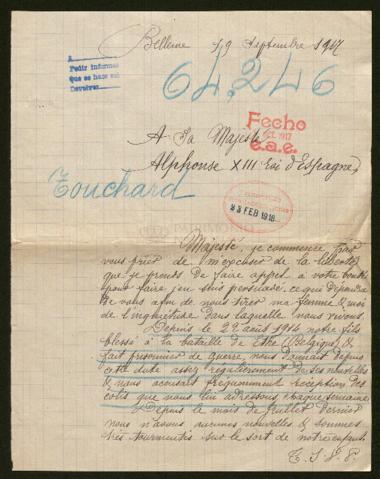 Bellème 19 Septembre 1917
A
Pedir informes
Que se hace así
Devolver
64,246
Fecho
OCT. 1917
e.a.e.
A Sa Majesté
Alphonse XIII roi d'Espagne,
Touchard
23 FEB 1918
PATRIMONIO
Majesté, je commence par
vous prier de m'excuser de la liberté
que je prends de faire appel à votre bonté
pour faire, j'en suis persuadé, ce qui dépendra
de vous afin de nous tirer ma femme & moi
de l'inquiétude dans laquelle nous vivons.
Depuis le 22 août 1914 notre fils
blessé à la bataille de Ethe (Belgique) &
fait prisonnier de guerre nous donnait depuis
cette date assez régulièrement de ses nouvelles
& nous accusait fréquemment réception des
colis que nous lui adressons chaque semaine
Depuis le mois de Juillet dernier
nous n'avons aucunes nouvelles & sommes
très tourmentés sur le sort de notre enfant.
T. S. V. P.